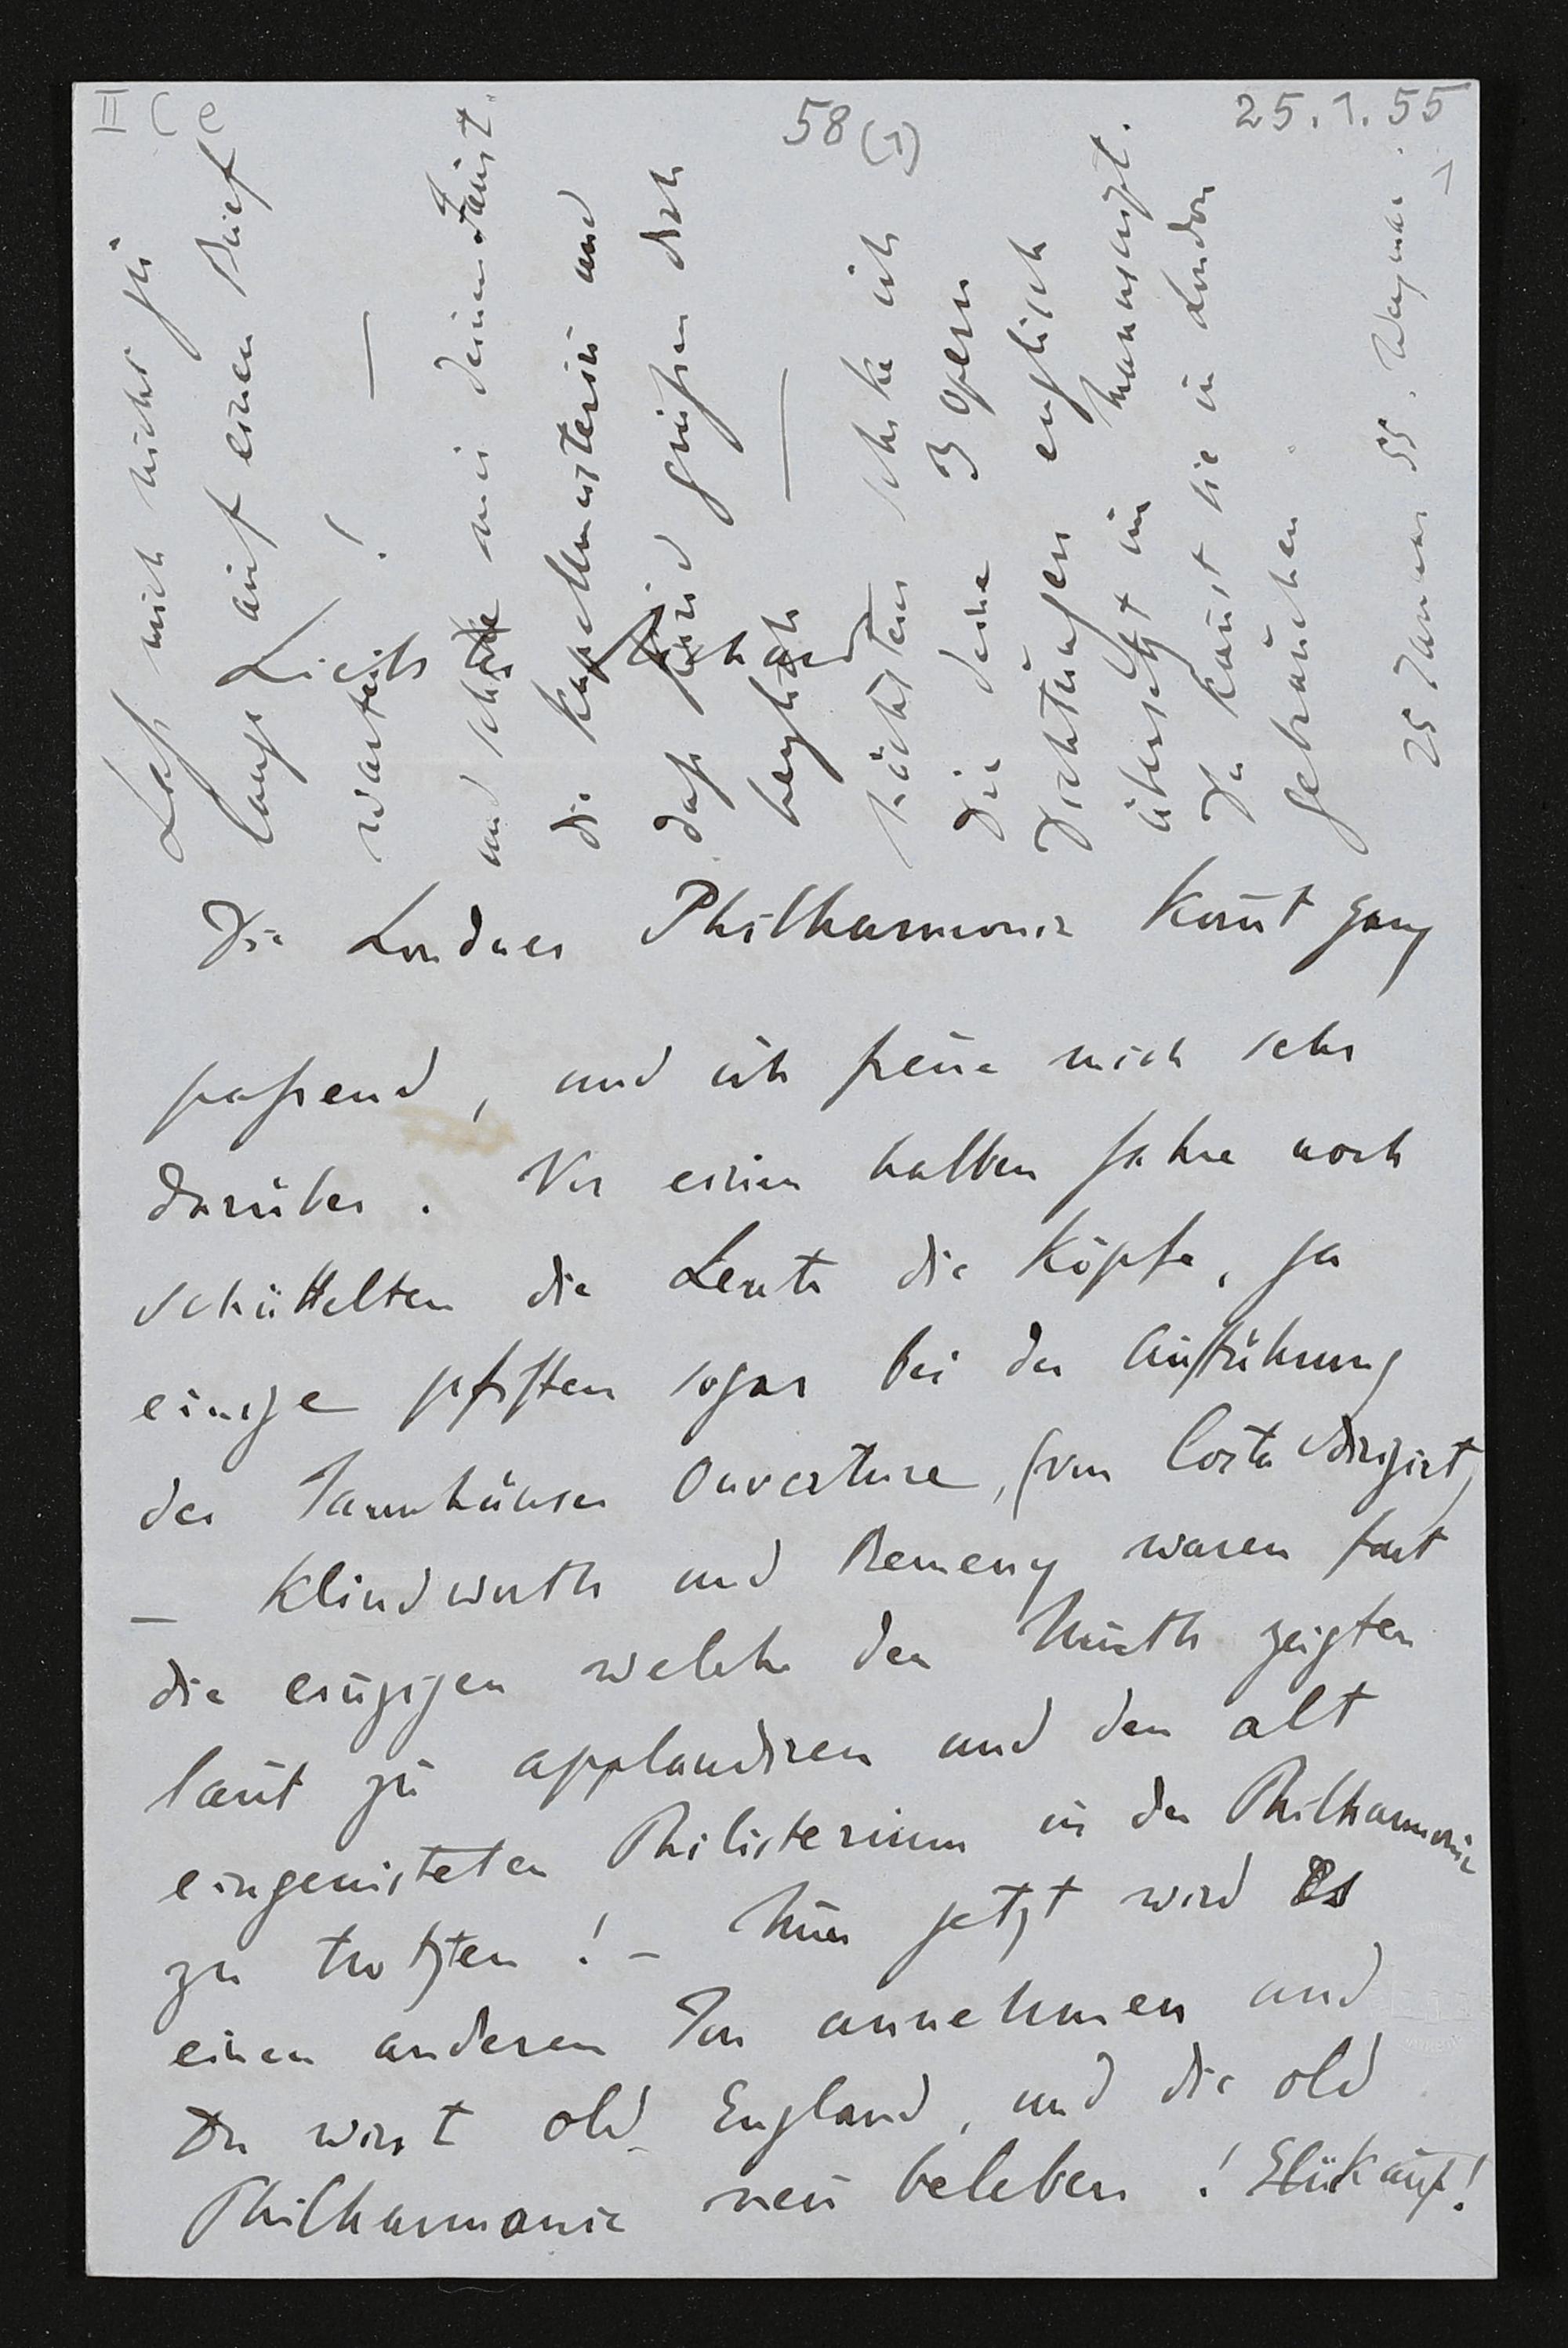 II C e
58 (1)
25.1.55
Liebster
Richard
Die Londner Philharmonic komt ganz
paßend, und ich freue mich sehr
darüber. Vor einem halben Jahre noch
schüttelten die Leute die Köpfe, ja
einige pfiffen sogar bei der Aufführung
der Tannhäuser Ouverture, (von Costa dirigirt)
— Klindworth und Remeny waren fast
die einzigen welche den Muth zeigten
laut zu applaudiren und den alt
eingenisteten Philisterium in der Philharmonic
zu trotzten! – Nun jetzt wird Es
einen anderen Ton annehmen und
Du wirst old England, und die old
Philharmonic neu beleben! Glük auf!
Laß mich nicht zu
lange auf einen Brief
warten! —
und schike mir deinen Faust.
die Kapellmeisterin und
daß Kind grüßen dich
herzlich —
Nächstens schike ich
Dir deine 3 Opern
Dichtungen englisch
übersetzt im Manuscript.
Du kanst sie in London
gebrauchen.
25 Januar 55. Weymar.